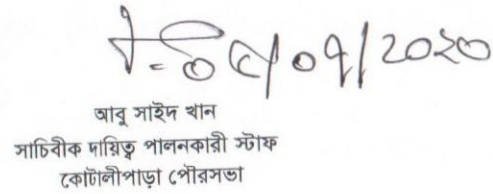 ০৭/২০২০
আবু সাইদ খান
সাচিবীক দায়িত্ব পালনকারী স্টাফ
কোটালীপাড়া পৌরসভা